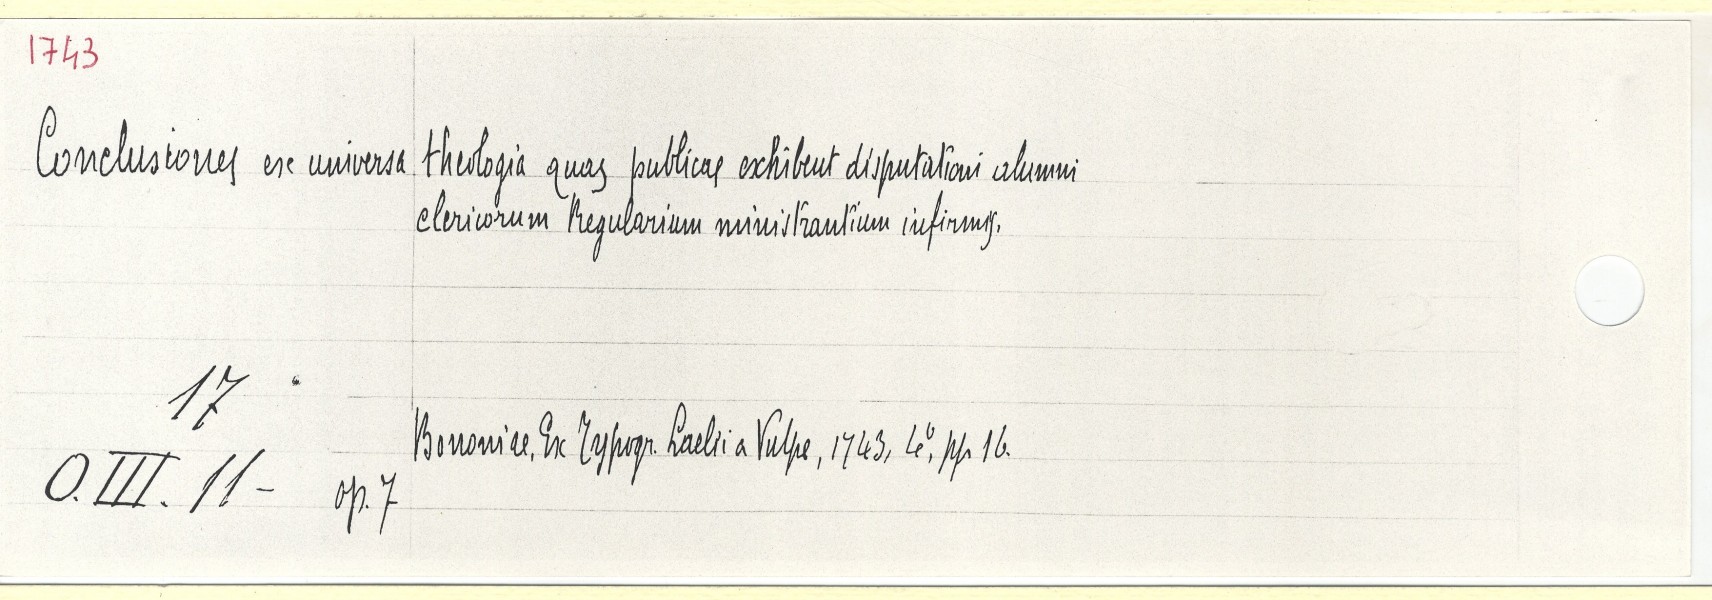 1743
Conclusiones ex universa theologia quas publicae exhibent disputationi alumni
clericorum Regularium ministrantium infirmis.
17
Bononiae, Ex Typogr. Laelii a Vulpe, 1743, 4°, pp. 16.
O.III. 11- op. 7